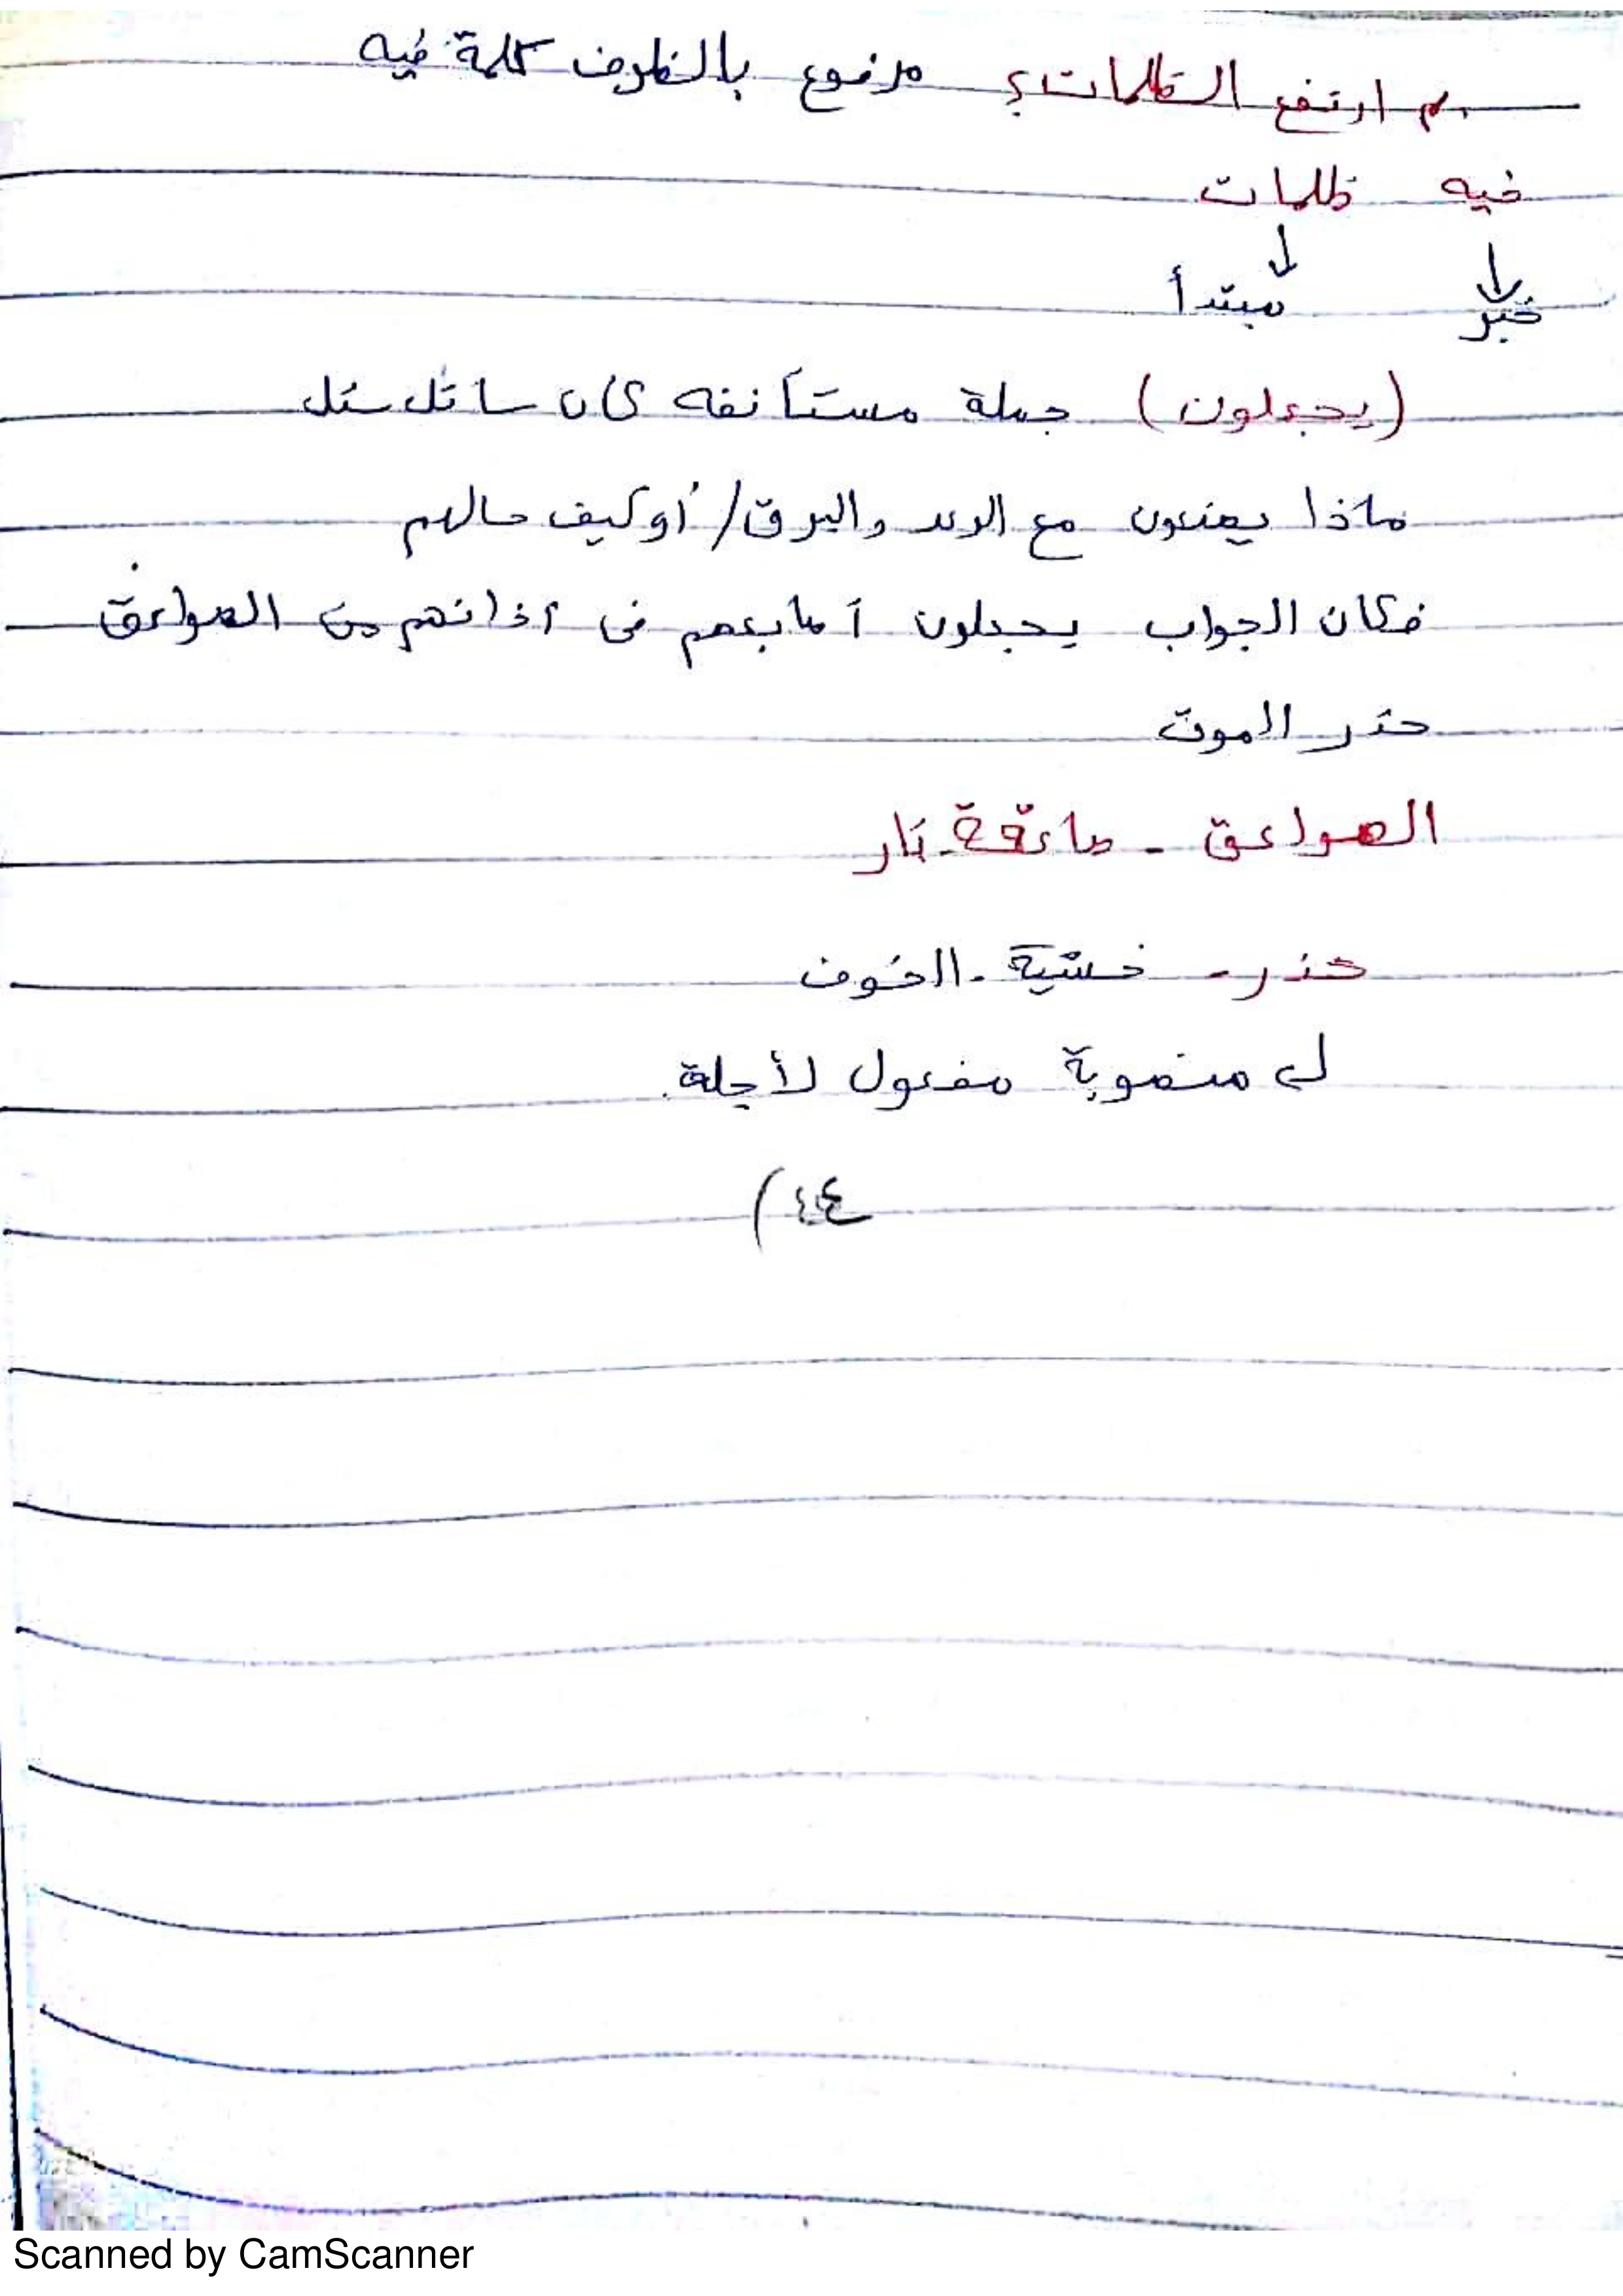 بم ارتفع الظلمات؟ مرفوع بالظرف كلمة فيه
فيه ظلمات
↓ ↓
خبر مبتدأ
(يجعلون) جملة مستأنفه كان سائل سئل
ماذا يصنعون مع الرعد والبرق/ أو كيف حالهم
فكان الجواب يجعلون أصابعهم فى آذانهم من الصواعق
حذر الموت
الصواعق - صاعقة - نار
حذر - خشية - الخوف
منصوبة مفعول لأجلة.
Scanned by CamScanner